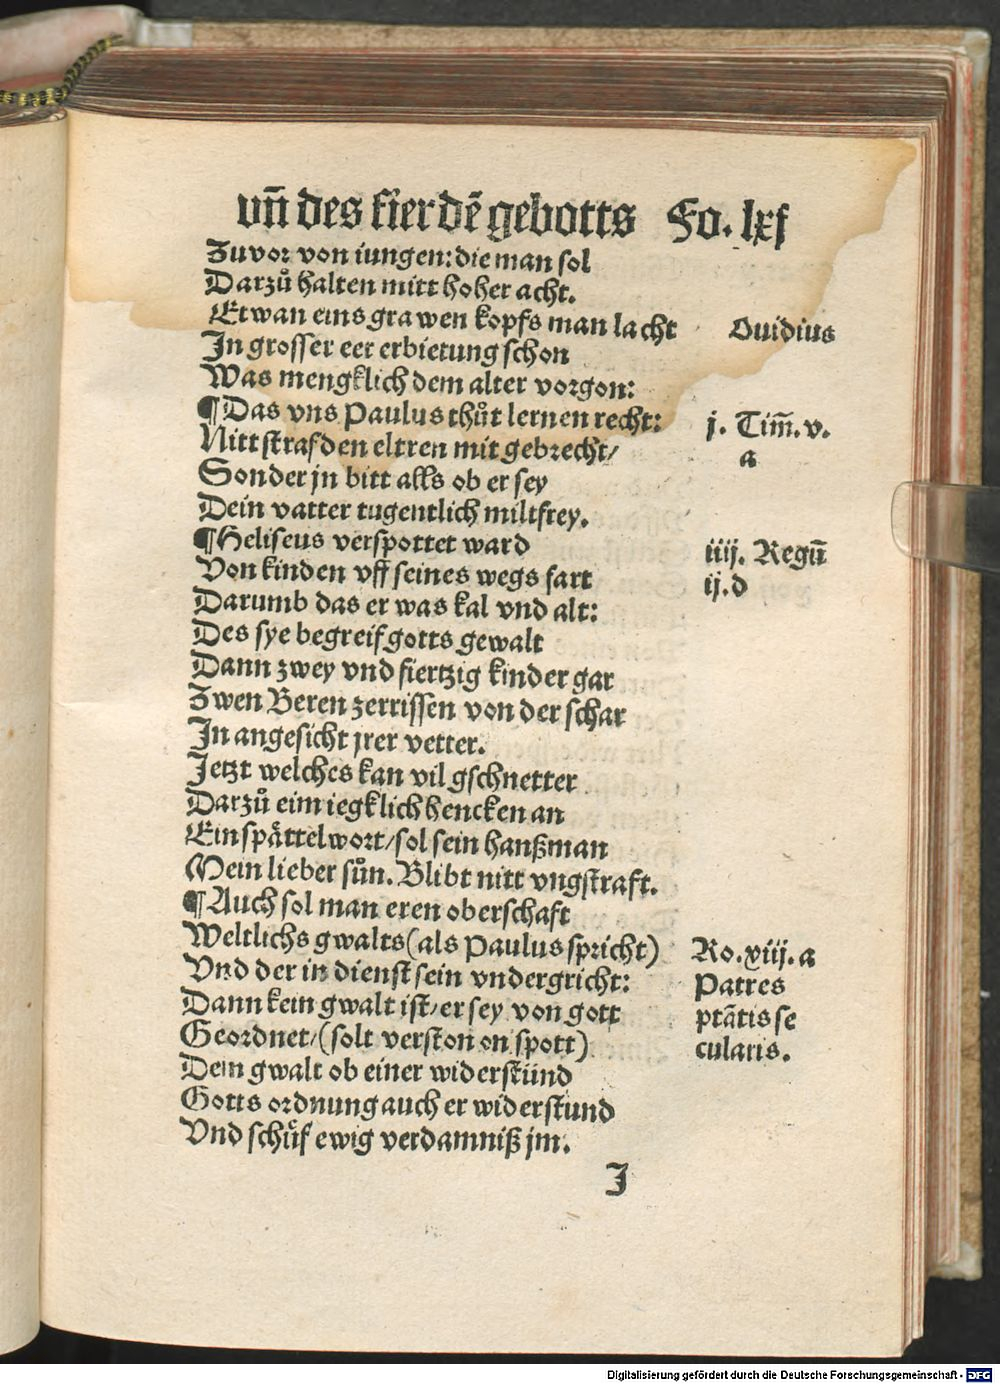 vñ des fierdẽ gebotts Fo. lxj
Zuvor von iungen: die man sol
Darzů halten mitt hoher acht.
Etwan eins grawen kopfs man lacht Ouidius
In grosser eer erbietung schon
Was mengklich dem alter vorgon:
¶ Das vns Paulus thůt lernen recht: j. Tim̃. v.
Nitt straf den eltren mit gebrecht/ a
Sonder jn bitt alls ob er sey
Dein vatter tugentlich miltfrey.
¶ Heliseus verspottet ward iiij. Regũ
Von kinden vff seines wegs fart ij. d
Darumb das er was kal vnd alt:
Des sye begreif gotts gewalt
Dann zwey vnd fiertzig kinder gar
Zwen Beren zerrissen von der schar
In angesicht jrer vetter.
Jetzt welches kan vil gschnetter
Darzů eim iegklich hencken an
Ein spåttel wort/ sol sein hanßman
Mein lieber sůn. Blibt nitt vngstraft.
¶ Auch sol man eren oberschaft
Weltlichs gwalts (als Paulus spricht) Ro. xiij. a
Vnd der in dienst sein vndergricht: Patres
Dann kein gwalt ist/ er sey von gott ptãtis se
Geordnet/ (solt verston on spott) cularis.
Dem gwalt ob einer widerstünd
Gotts ordnung auch er widerstund
Vnd schůf ewig verdamniß jm.
I
Digitalisierung gefördert durch die Deutsche Forschungsgemeinschaft - DFG